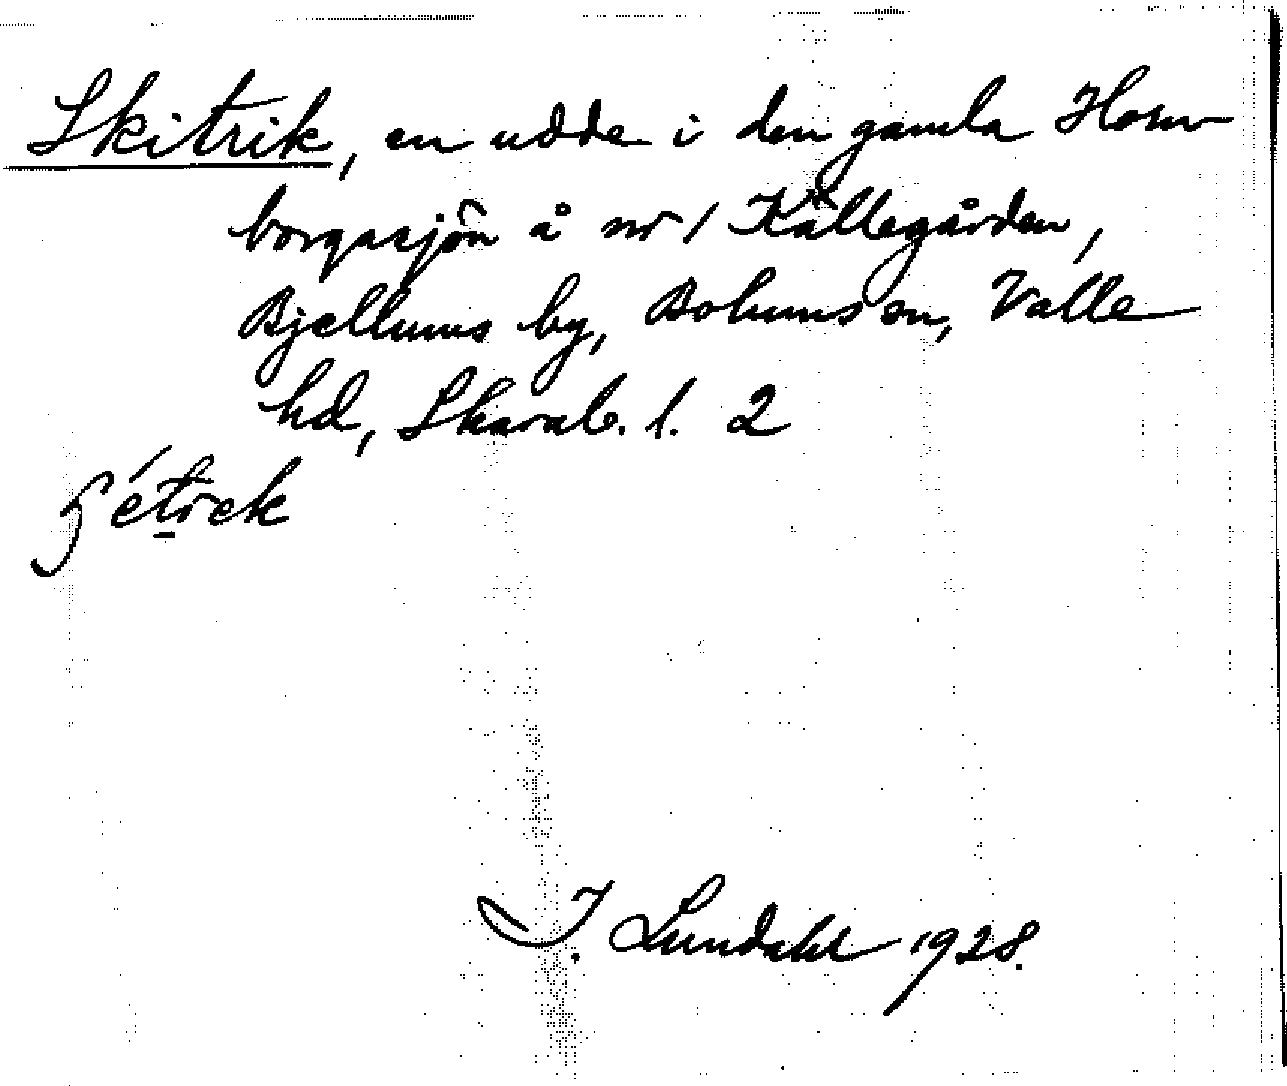 Skitrik, en udde i den gamla Horn-
borgasjön å nr 1 Källegården,
Bjellums by, Bolums sn, Valle
hd, Skarab. l. 2
ʃétrek
I. Lundahl 1928.